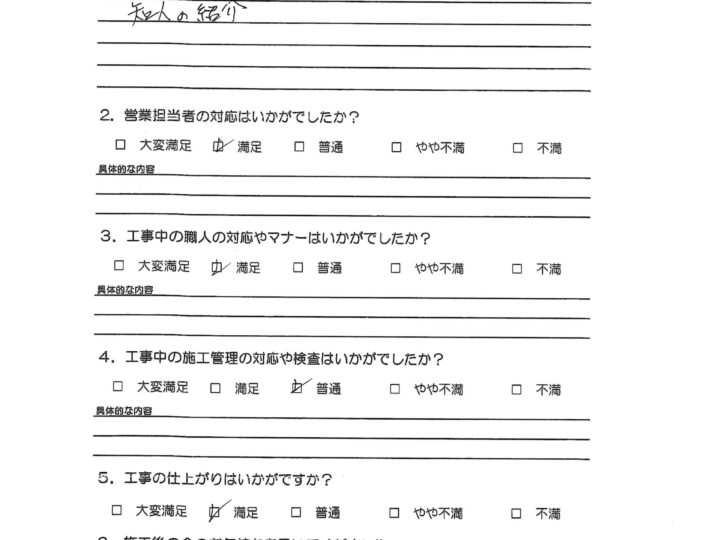 知人の紹介
2. 営業担当者の対応はいかがでしたか？
□ 大変満足 ☑ 満足 □ 普通 □ やや不満 □ 不満
具体的な内容
3. 工事中の職人の対応やマナーはいかがでしたか？
□ 大変満足 ☑ 満足 □ 普通 □ やや不満 □ 不満
具体的な内容
4. 工事中の施工管理の対応や検査はいかがでしたか？
□ 大変満足 □ 満足 ☑ 普通 □ やや不満 □ 不満
具体的な内容
5. 工事の仕上がりはいかがですか？
□ 大変満足 ☑ 満足 □ 普通 □ やや不満 □ 不満